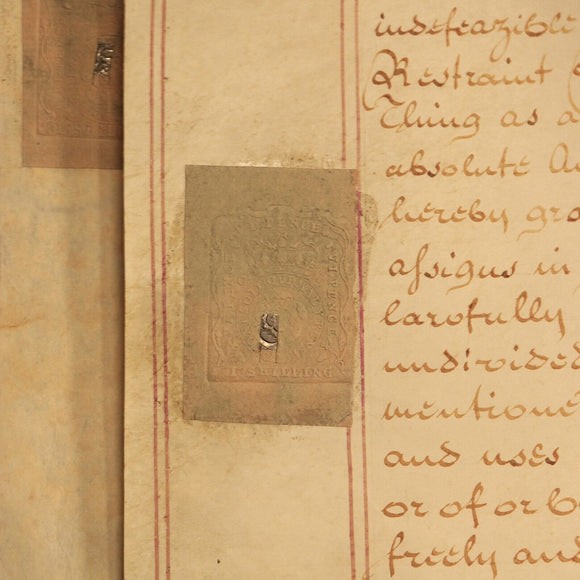 indefeazible
Restraint
Thing as a
absolute
hereby gra
assigns in
lawfully
undivided
mentione
and uses
or of or b
freely and
SIXPENCE
SHILLING